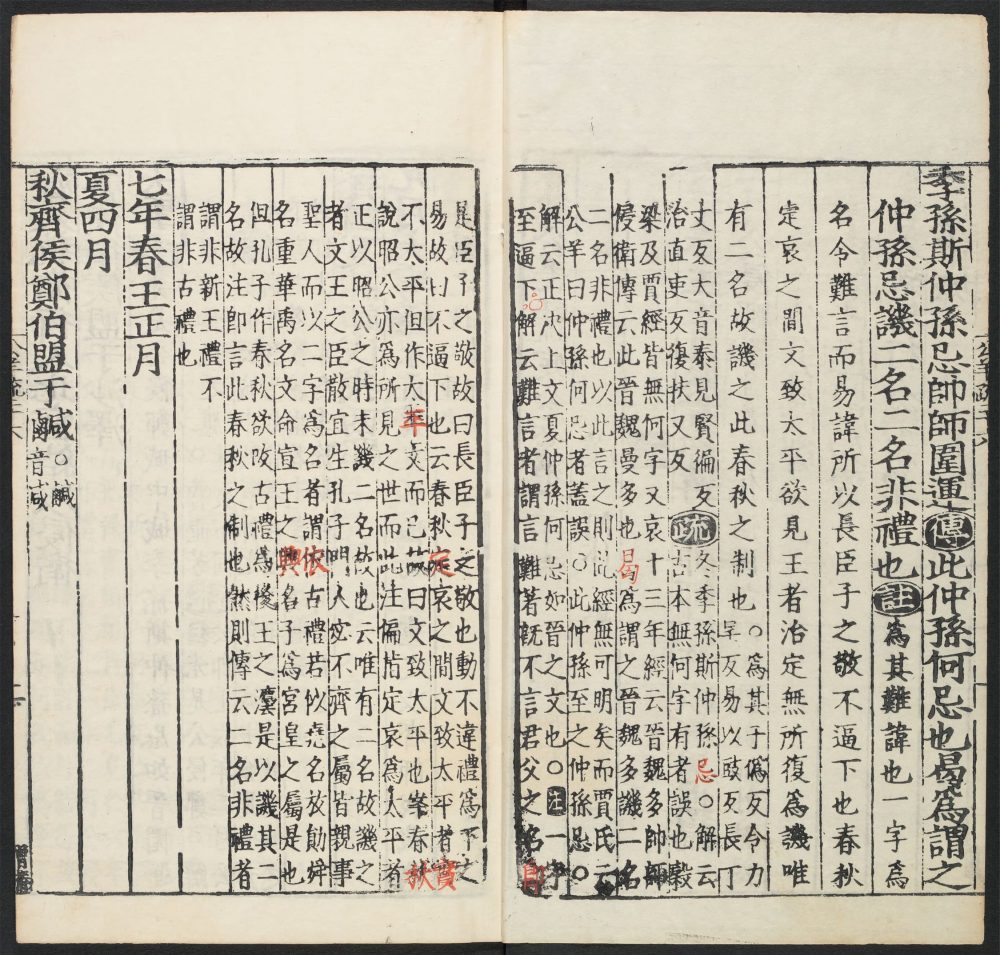 季孫斯仲孫忌帥師圍運傳此仲孫何忌也曷爲謂之
仲孫忌譏二名二名非禮也註爲其難諱也一字爲
名令難言而易諱所以長臣子之敬不逼下也春秋
定哀之間文致太平欲見王者治定無所復爲譏唯
有二名故譏之此春秋之制也
○爲其于僞反令力
呈反易以豉反長丁
丈反大音泰見賢徧反
治直吏反復扶又反
疏冬季孫斯仲孫忌○解云
古本無何字有者誤也穀
梁及賈經皆無何字又哀十三年經云晉魏多帥師
侵衛傳云此晉魏曼多也曷爲謂之晉魏多譏二名
二名非禮也以此言之則此經無可明矣而賈氏云
公羊曰仲孫何忌者蓋誤○此仲孫至之仲孫忌○
解云正決上文夏仲孫何忌如晉之文也○注一字
至逼下○解云難言者謂言難著旣不言君父之名
是臣子之敬故曰長臣子之敬也動不違禮爲下之
易故曰不逼下也云春秋定哀之間文致太平者實
不太平但作太平文而已故曰文致太平也峯春秋
說昭公亦爲所見之世而此注偏指定哀爲太平者
正以昭公之時未譏二名故也云唯有二名故譏之
者文王之臣散宜生孔子門人宓不齊之屬皆親事
聖人而以二字爲名者謂依古禮若似堯名放勛舜
名重華禹名文命宣王之興名子爲宮皇之屬是也
但孔子作春秋欲改古禮爲後王之灋是以譏其二
名故注卽言此春秋之制也然則傳云二名非禮者
謂非新王禮不
謂非古禮也
七年春王正月
夏四月
秋齊侯鄭伯盟于鹹○鹹
音咸